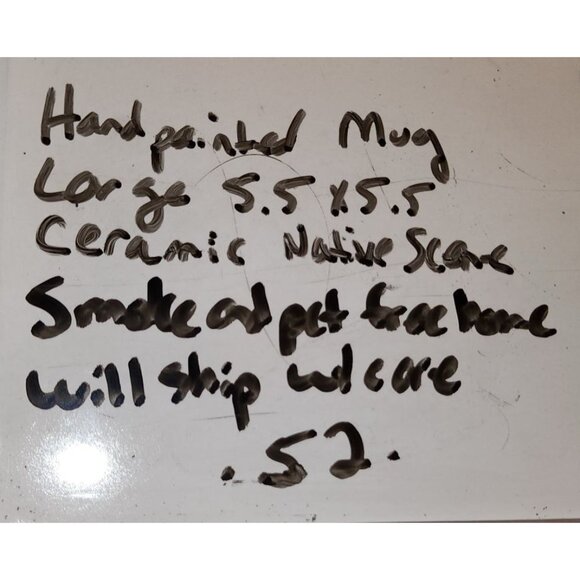 Hand painted Mug
Large 5.5 x 5.5
Ceramic Native Scene
Smoke and pet free home
will ship w/ care
.52.